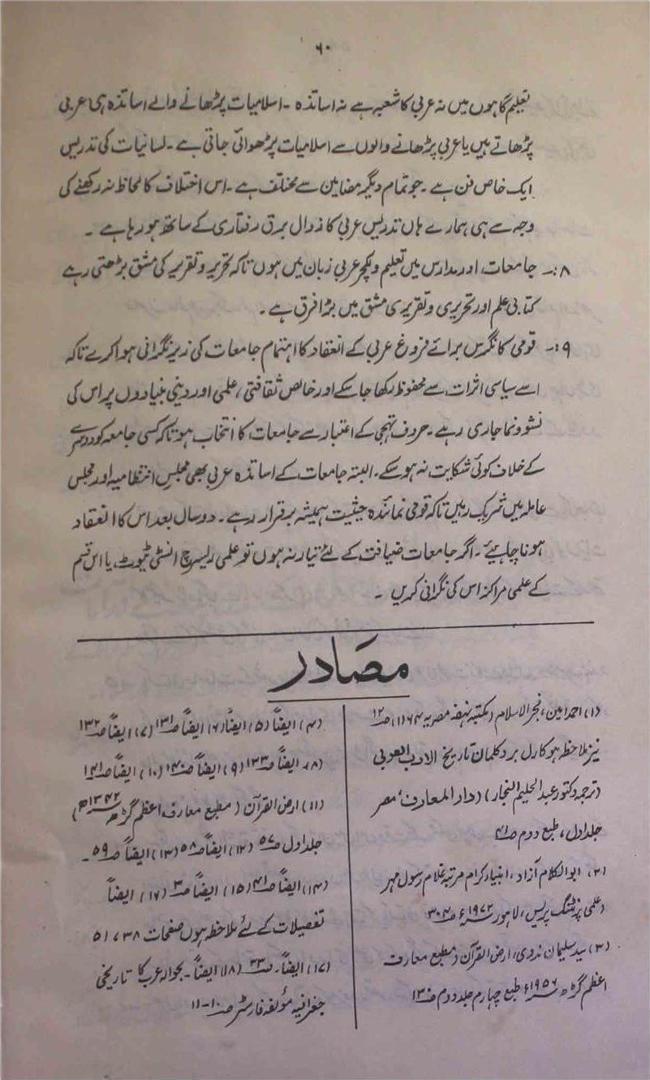 ۶۰
تعلیم گاہوں میں نہ عربی کا شعبہ ہے نہ اساتذہ ۔ اسلامیات پڑھانے والے اساتذہ ہی عربی
پڑھاتے ہیں یا عربی پڑھانے والوں سے اسلامیات پڑھوائی جاتی ہے ۔ لسانیات کی تدریس
ایک خاص فن ہے ۔ جو تمام دیگر مضامین سے مختلف ہے ۔ اس اختلاف کا لحاظ نہ رکھنے کی
وجہ سے ہی ہمارے ہاں تدریس عربی کا زوال برق رفتاری کے ساتھ ہو رہا ہے ۔
۸:۔ جامعات، اور مدارس میں تعلیم و لکچر عربی زبان میں ہوں تاکہ تحریر و تقریر کی مشق بڑھتی رہے
کتابی علم اور تحریری و تقریری مشق میں بڑا فرق ہے ۔
۹:۔ قومی کانگرس برائے فروغ عربی کے انعقاد کا اہتمام جامعات کی زیر نگرانی ہوا کرے تاکہ
اسے سیاسی اثرات سے محفوظ رکھا جا سکے اور خالص ثقافتی، علمی اور دینی بنیادوں پر اس کی
نشوونما جاری رہے ۔ حروف تہجی کے اعتبار سے جامعات کا انتخاب ہو تاکہ کسی جامعہ کو دوسرے
کے خلاف کوئی شکایت نہ ہو سکے ۔ البتہ جامعات کے اساتذہ عربی بھی مجلس انتظامیہ اور مجلس
عاملہ میں شریک رہیں تاکہ قومی نمائندہ حیثیت ہمیشہ برقرار رہے ۔ دو سال بعد اس کا انعقاد
ہونا چاہیئے ۔ اگر جامعات ضیافت کے لئے تیار نہ ہوں تو علمی ریسرچ انسٹی ٹیوٹ، یا اس قسم
کے علمی مراکز اس کی نگرانی کریں ۔
مصادر
(۱) احمد امین، فجر الاسلام (مکتبہ نہضہ مصریہ ۶۴ء) ص۱۲
نیز ملاحظہ ہو کارل بروکلمان تاریخ الادب العربی
(ترجمہ دکتور عبدالحلیم النجار) (دار المعارف، مصر
جلد اول، طبع دوم ص۴۱
(۲) ابوالکلام آزاد، انبیاء کرام مرتبہ غلام رسول مہر
(علمی پرنٹنگ پریس، لاہور ۱۹۷۲ء ص۳۰۴
(۳) سید سلیمان ندوی، ارض القرآن (مطبع معارف
اعظم گڑھ ۱۹۵۶ء طبع چہارم جلد دوم ص۱۳۰
(۴) ایضاً (۵) ایضاً (۶) ایضاً ص۱۳۱ (۷) ایضاً ص۱۳۲
(۸) ایضاً ص۱۳۳ (۹) ایضاً ص۱۴۰ (۱۰) ایضاً ص۱۴۱
(۱۱) ارض القرآن (مطبع معارف اعظم گڑھ ۱۳۴۲ھ)
جلد اول ص۵۷ (۱۲) ایضاً ص۵۸ (۱۳) ایضاً ص۵۹۔
(۱۴) ایضاً ص۴۱ (۱۵) ایضاً ص۳ (۱۶) ایضاً
تفصیلات کے لئے ملاحظہ ہوں صفحات ۳۸ تا ۵۱
(۱۷) ایضاً۔ ص۲۳ (۱۸) ایضاً۔ بحوالہ عرب کا تاریخی
جغرافیہ مؤلفہ فارسٹر ص۱۰-۱۱